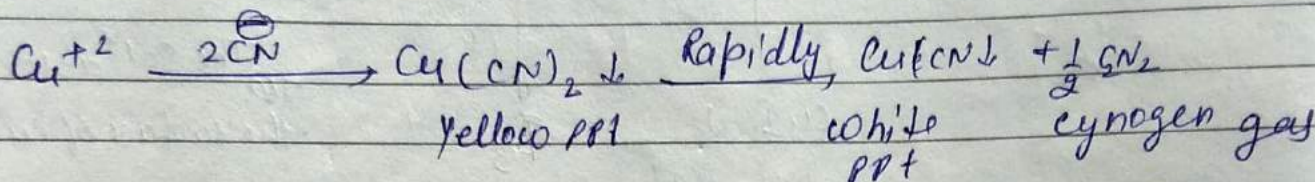 Cu⁺² —2CN⊖→ Cu(CN)₂ ↓ —Rapidly→ CuCN↓ + ½ C₂N₂
yellow ppt white cynogen gas
ppt